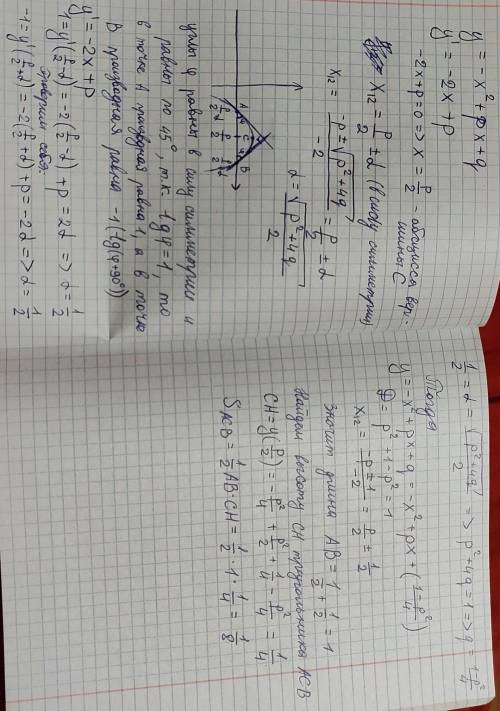 y = -x² + px + q
y' = -2x + p
-2x + p = 0 => x = p/2 - абсцисса вер-
шины C
x₁₂ = p/2 ± d (ввиду симметрии)
x₁₂ = (-p ± √(p² + 4q))/(-2) = p/2 ± d
d = √(p² + 4q)/2
A C B
φ φ
p/2 - d p/2 p/2 + d
углы φ равны в силу симметрии и
равны по 45°, т.к. tg φ = 1, то
в точке A производная равна 1, а в точке
B производная равна -1 (tg(φ+90°))
y' = -2x + p
1 = y'(p/2 - d) = -2(p/2 - d) + p = 2d => d = 1/2
проверим себя:
-1 = y'(p/2 + d) = -2(p/2 + d) + p = -2d => d = 1/2
1/2 = d = √(p² + 4q)/2 => p² + 4q = 1 => q = (1 - p²)/4
Тогда
y = -x² + px + q = -x² + px + ((1 - p²)/4)
D = p² + 1 - p² = 1
x₁₂ = (-p ± 1)/(-2) = p/2 ± 1/2
значит длина AB = 1/2 + 1/2 = 1
Найдем высоту CH треугольника ACB
CH = y(p/2) = -p²/4 + p²/2 + 1/4 - p²/4 = 1/4
S ACB = 1/2 AB · CH = 1/2 · 1 · 1/4 = 1/8